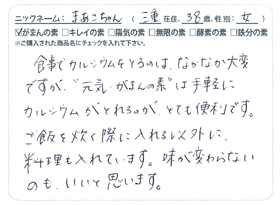 ニックネーム: まあこちゃん （三重 在住、38歳、性別：女 ）
☑がまんの素 □キレイの素 □陽気の素 □無限の素 □酵素の素 □鉄分の素
※ご購入された商品名にチェックを入れて下さい。
食事でカルシウムをとるのは、なかなか大変
ですが、"元気・がまんの素"は手軽に
カルシウムがとれるのが、とても便利です。
ご飯を炊く際に入れる以外に、
料理も入れています。味が変わらない
のも、いいと思います。